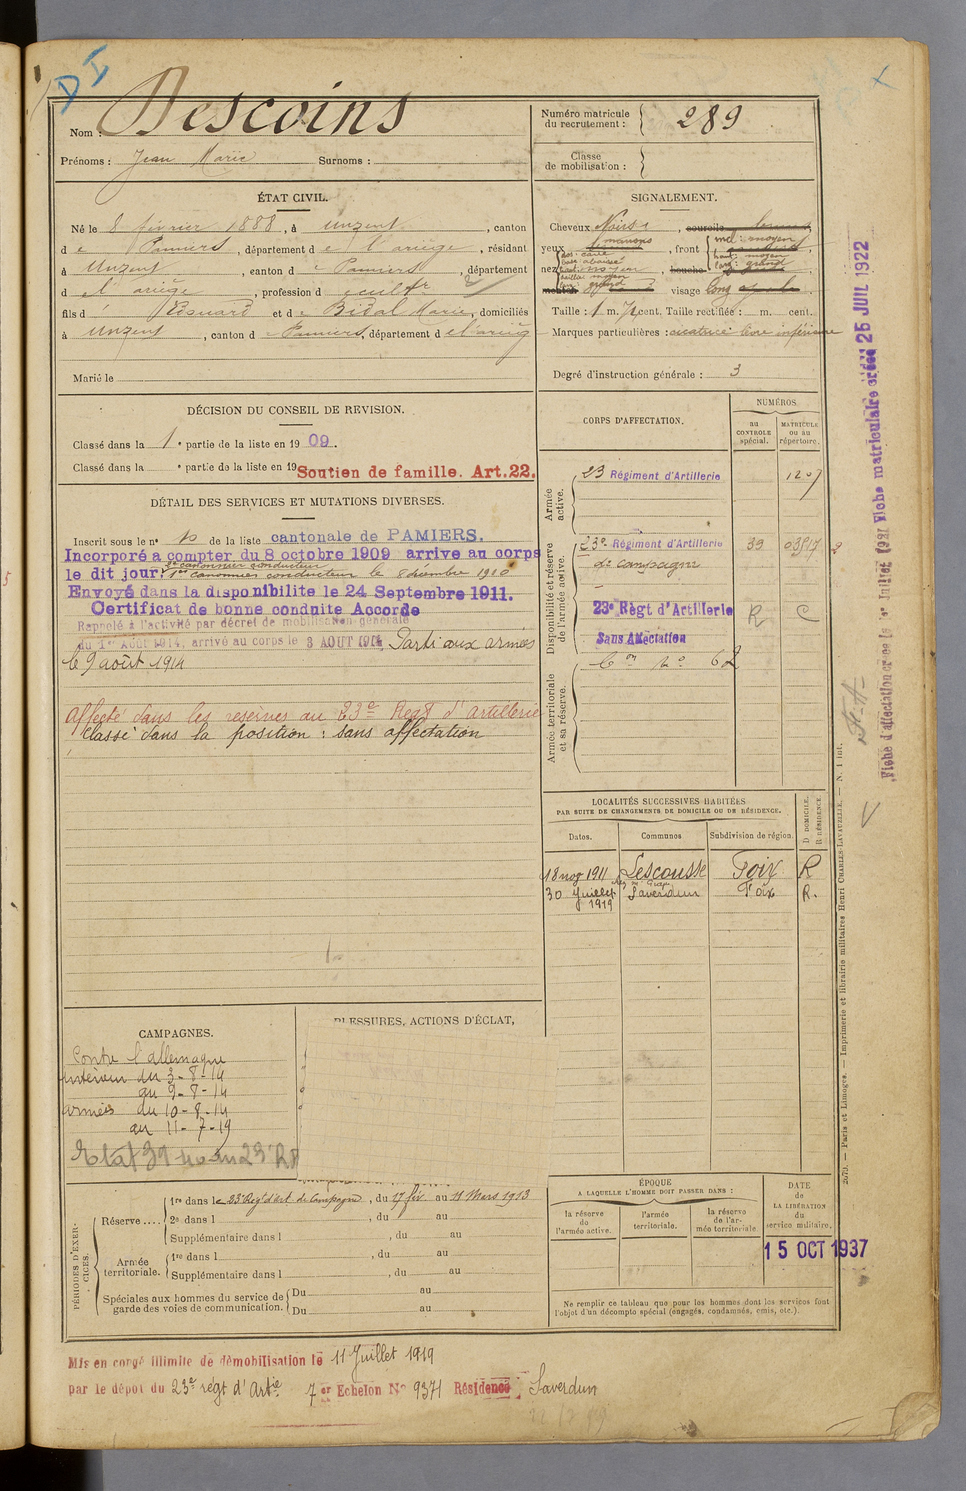 D I
Nom : Descoins
Prénoms : Jean Marie Surnoms :
Numéro matricule du recrutement : 289
Classe de mobilisation :
ÉTAT CIVIL.
Né le 8 février 1888, à Unzent, canton
de Pamiers, département de l'ariège, résidant
à Unzent, canton de Pamiers, département
d l'ariège, profession de cultr
fils d' Edouard et de Bidal Marie, domiciliés
à Unzent, canton de Pamiers, département de l'ariège
Marié le
SIGNALEMENT.
Cheveux Noirs, sourcils
yeux , front
incl : moyen
haut : moyen
larg : grand
nez moyen, bouche
dos : cave
base abaissé
visage long
Taille : 1 m. 71 cent. Taille rectifiée : m. cent.
Marques particulières : cicatrice lèvre inférieure
Degré d'instruction générale : 3
DÉCISION DU CONSEIL DE REVISION.
Classé dans la 1e partie de la liste en 1909.
Classé dans la e partie de la liste en 19 Soutien de famille. Art.22.
DÉTAIL DES SERVICES ET MUTATIONS DIVERSES.
Inscrit sous le n° 10 de la liste cantonale de PAMIERS.
Incorporé a compter du 8 octobre 1909 arrive au corps
le dit jour. 2e canonnier conducteur
1er canonnier conducteur le 8 décembre 1910
Envoyé dans la disponibilite le 24 Septembre 1911.
Certificat de bonne conduite Accorde
Rappelé à l'activité par décret de mobilisation générale
du 1er Août 1914, arrivé au corps le 3 AOUT 1914 Parti aux armées
le 9 août 1914
Affecté dans les reserves au 23e Regt d'artillerie
Classé dans la position : sans affectation
CORPS D'AFFECTATION.
NUMÉROS
au CONTROLE spécial.
MATRICULE ou au répertoire.
Armée active.
23 Régiment d'Artillerie 1207
Disponibilité et réserve de l'armée active.
23e Régiment d'Artillerie 39
de campagne
23e Règt d'Artillerie R C
Sans Affectation
Armée territoriale et sa réserve.
LOCALITÉS SUCCESSIVES HABITÉES
PAR SUITE DE CHANGEMENTS DE DOMICILE OU DE RÉSIDENCE.
Dates. Communes Subdivision de région. D DOMICILE. R RÉSIDENCE
18 nov 1911 Lescousse Foix R
30 Juillet 1919 Saverdun Foix R.
CAMPAGNES.
Contre l'allemagne
intérieur du 3-8-14
au 9-8-14
armées du 10-8-14
au 11-7-19
BLESSURES, ACTIONS D'ÉCLAT,
PÉRIODES D'EXERCICES.
Réserve .... 1re dans le 23e Regt d'art de Campagne, du 17 fév au 11 Mars 1913
2e dans l , du au
Supplémentaire dans l , du au
Armée territoriale. 1re dans l , du au
Supplémentaire dans l , du au
Spéciales aux hommes du service de garde des voies de communication. Du au
Du au
ÉPOQUE
A LAQUELLE L'HOMME DOIT PASSER DANS :
la réserve de l'armée active.
l'armée territoriale.
la réserve de l'armée territoriale
DATE de LA LIBÉRATION du service militaire.
15 OCT 1937
Ne remplir ce tableau que pour les hommes dont les services font
l'objet d'un décompte spécial (engagés, condamnés, omis, etc.).
Mis en congé illimite de démobilisation le 11 Juillet 1919
par le dépôt du 23e régt d'Artie 7er Echelon N° 9371 Résidence Saverdun
Fiche matriculaire créée 25 JUIL 1922
Fiche d'affectation créée le 1er Juillet 1921
2079. — Paris et Limoges. — Imprimerie et librairie militaires Henri CHARLES-LAVAUZELLE. — N. 1 int.